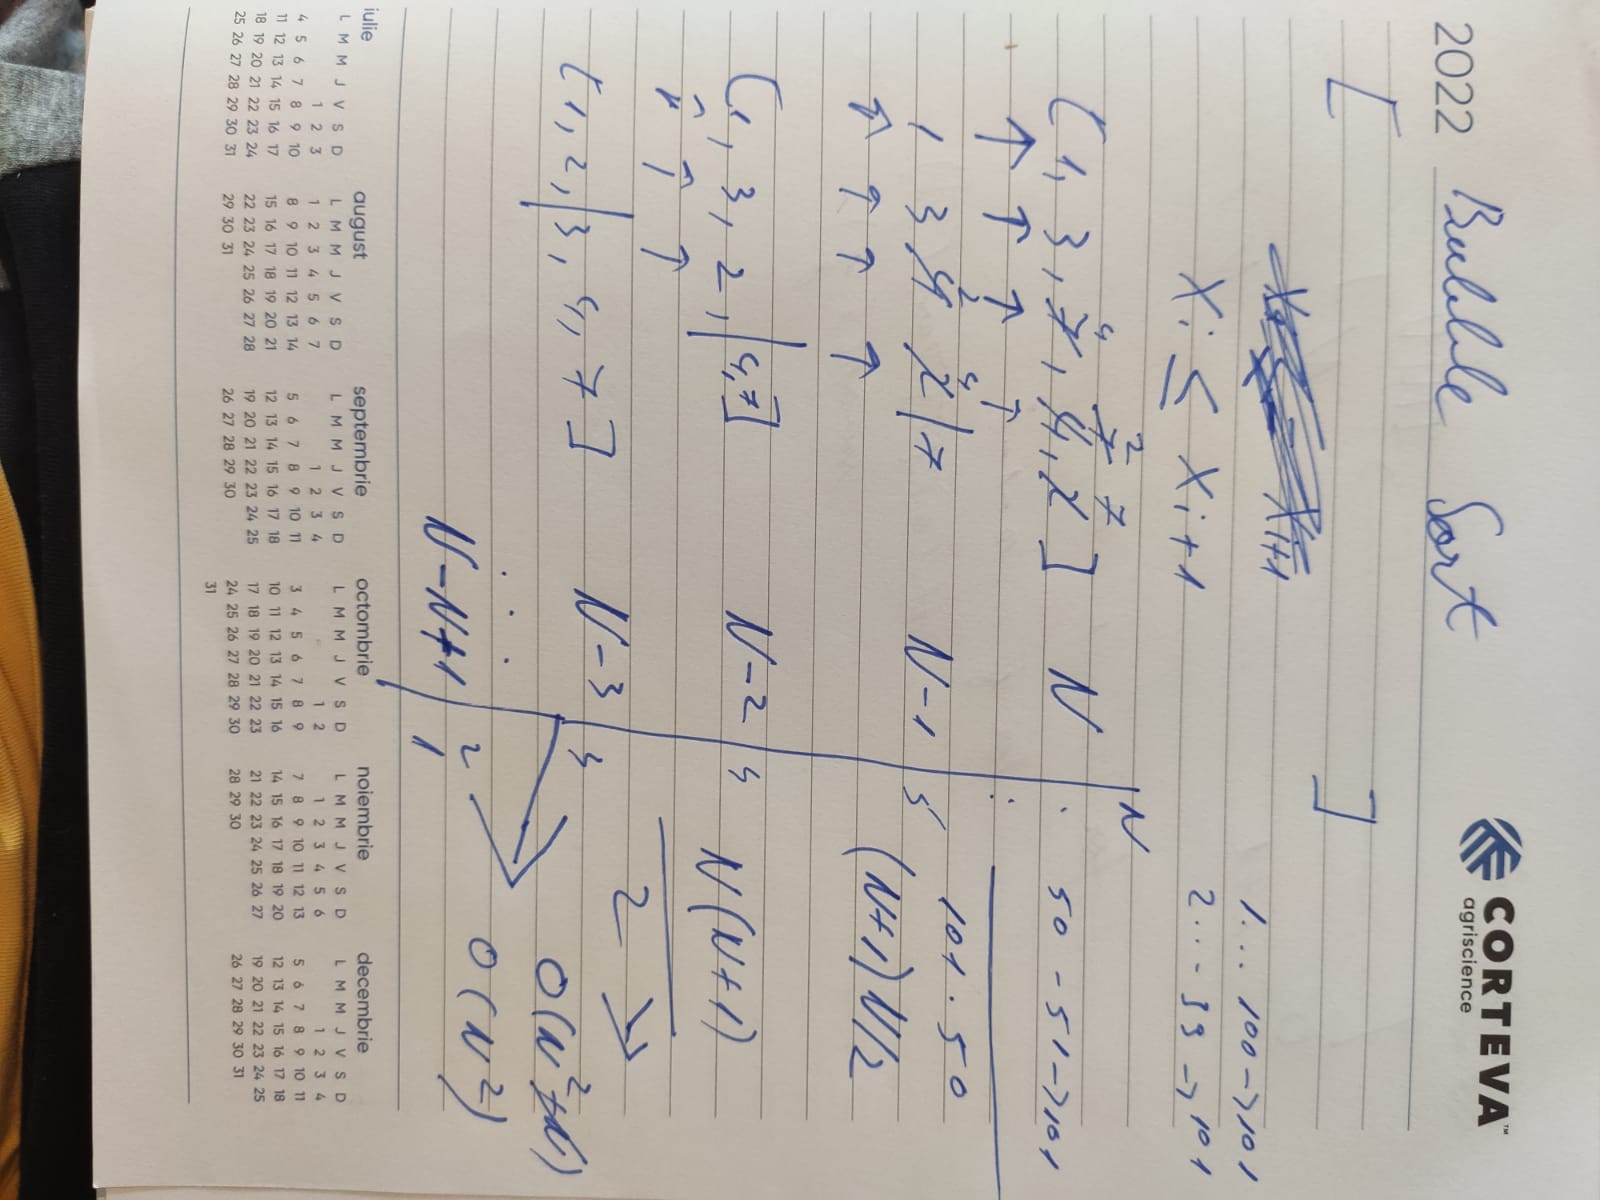 2022
CORTEVA™
agriscience
Bubble Sort
[ ]
Xi ≤ Xi+1
1... 100 -> 101
2... 99 -> 101
50 - 51 -> 101
101 . 50
(N+1)N/2
N(N+1)
2
O(N²+N)
O(N²)
[1, 3, 7, 4, 2] N
4 7 2 7
1 3 4 2 | 7 N-1
2 4
[1, 3, 2, | 4, 7] N-2
[1, 2, | 3, 4, 7] N-3
N-N+1
N
5
4
3
2
1
iulie
L M M J V S D
1 2 3
4 5 6 7 8 9 10
11 12 13 14 15 16 17
18 19 20 21 22 23 24
25 26 27 28 29 30 31
august
L M M J V S D
1 2 3 4 5 6 7
8 9 10 11 12 13 14
15 16 17 18 19 20 21
22 23 24 25 26 27 28
29 30 31
septembrie
L M M J V S D
1 2 3 4
5 6 7 8 9 10 11
12 13 14 15 16 17 18
19 20 21 22 23 24 25
26 27 28 29 30
octombrie
L M M J V S D
1 2
3 4 5 6 7 8 9
10 11 12 13 14 15 16
17 18 19 20 21 22 23
24 25 26 27 28 29 30
31
noiembrie
L M M J V S D
1 2 3 4 5 6
7 8 9 10 11 12 13
14 15 16 17 18 19 20
21 22 23 24 25 26 27
28 29 30
decembrie
L M M J V S D
1 2 3 4
5 6 7 8 9 10 11
12 13 14 15 16 17 18
19 20 21 22 23 24 25
26 27 28 29 30 31